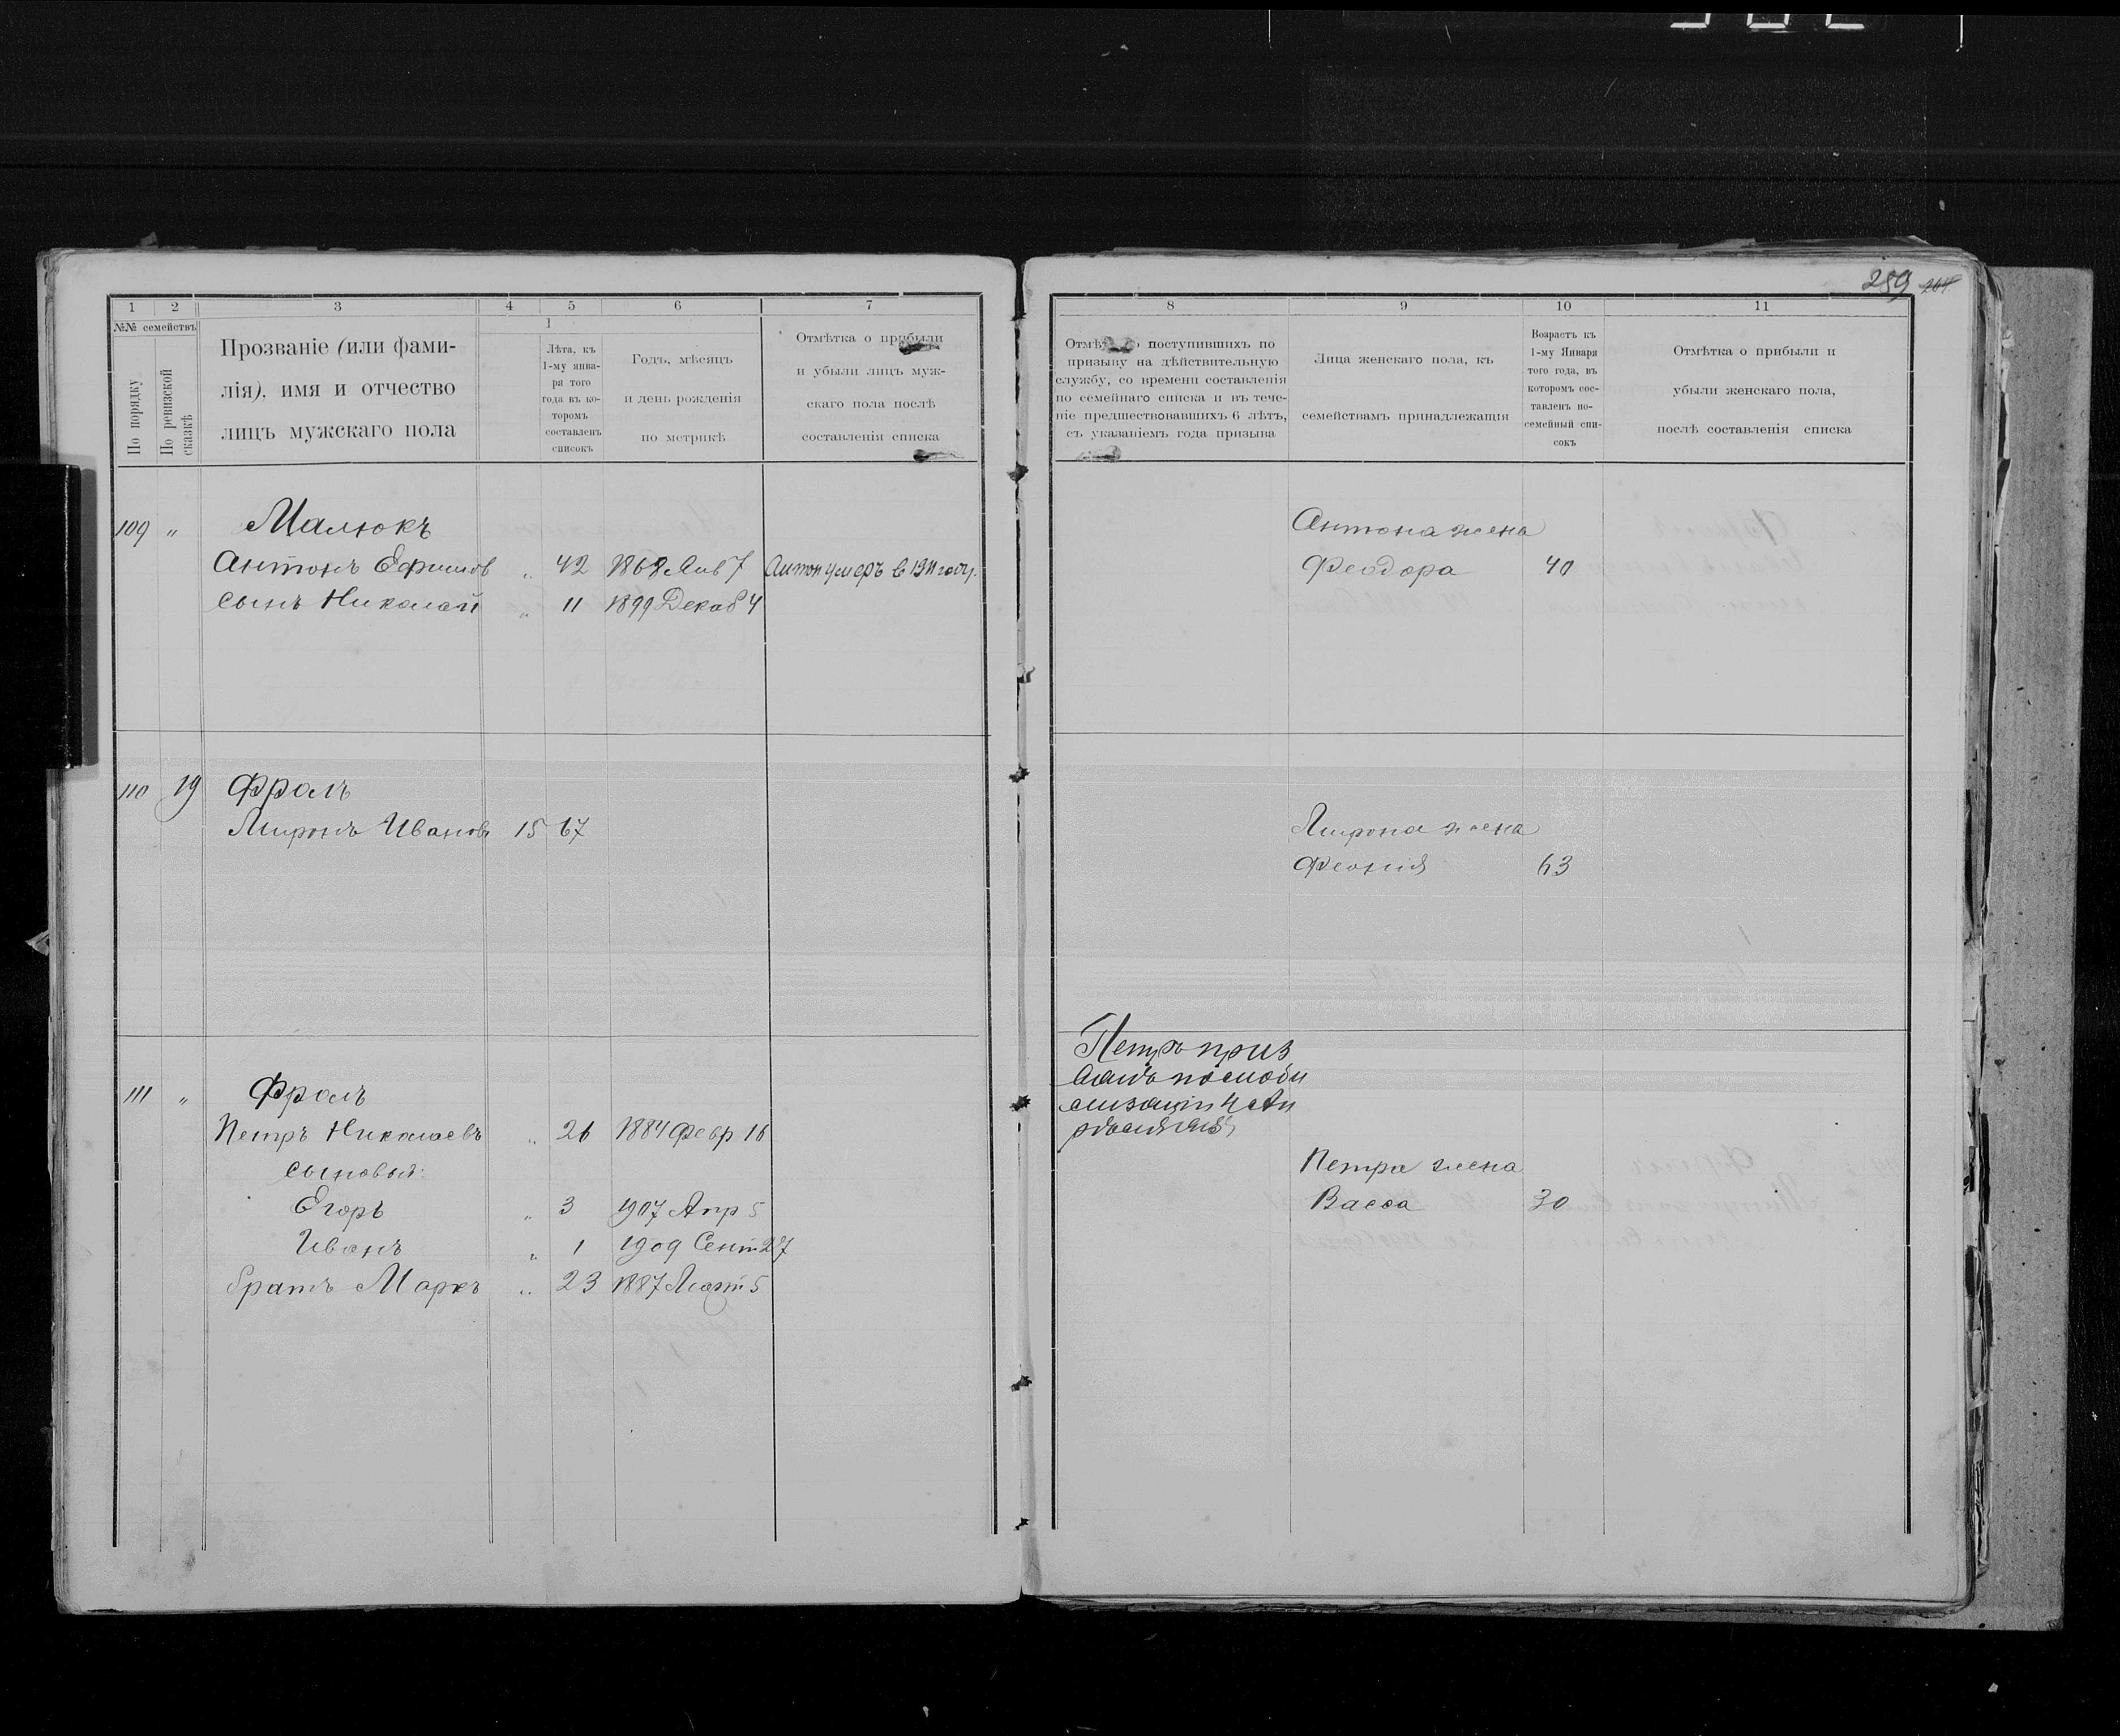 259 264
1 2 3 4 5 6 7
№№ семействъ
По порядку
По ревизской сказкѣ
Прозваніе (или фами-
лія), имя и отчество
лицъ мужскаго пола
1
Лѣта, къ
1-му янва-
ря того
года въ ко-
торомъ
составленъ
списокъ
Годъ, мѣсяцъ
и день рожденія
по метрикѣ
Отмѣтка о прибыли
и убыли лицъ муж-
скаго пола послѣ
составленія списка
109 „ Малюкъ
Антонъ Ефимов „ 42 1868 Янв 7 Антон умеръ в 1911 году.
сынъ Николай „ 11 1899 Декаб 4
110 19 Фролъ
Миронъ Иванов 15 67
111 „ Фролъ
Петръ Николаевъ „ 26 1884 Февр 16
сыновья:
Егоръ „ 3 1907 Апр 5
Иванъ „ 1 1909 Сент 27
братъ Маркъ „ 23 1887 Март 5
8 9 10 11
поступившихъ по
призыву на дѣйствительную
службу, со времени составленія
по семейнаго списка и въ тече-
ніе предшествовавшихъ 6 лѣтъ,
съ указаніемъ года призыва
Лица женскаго пола, къ
семействамъ принадлежащія
Возрастъ къ
1-му Января
того года, въ
которомъ сос-
тавленъ по-
семейный спи-
сокъ
Отмѣтка о прибыли и
убыли женскаго пола,
послѣ составленія списка
Антона жена
Феодора 40
Мирона жена
Феонія 63
Петръ приз
ванъ по моби
лизаціи 4 Ап
рѣля
Петра жена
Васса 30